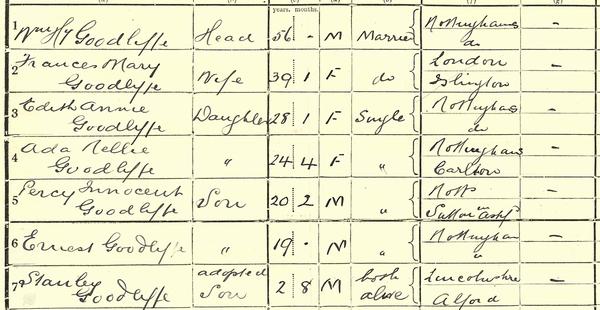 years. months.
1 Wm Hy Goodliffe Head 56 - M Married Nottinghams
do -
2 Frances Mary Wife 39 1 F do London
Goodliffe Islington -
3 Edith Annie Daughter 28 1 F Single Nottinghams
Goodliffe do -
4 Ada Nellie " 24 4 F " Nottinghams
Goodliffe Carlton -
5 Percy Innocent Son 20 2 M " Notts
Goodliffe Sutton in Ashf -
6 Ernest Goodliffe " 19 - M " Nottingham
" -
7 Stanley adopted 2 8 M both Lincolnshire
Goodliffe Son alive Alford -